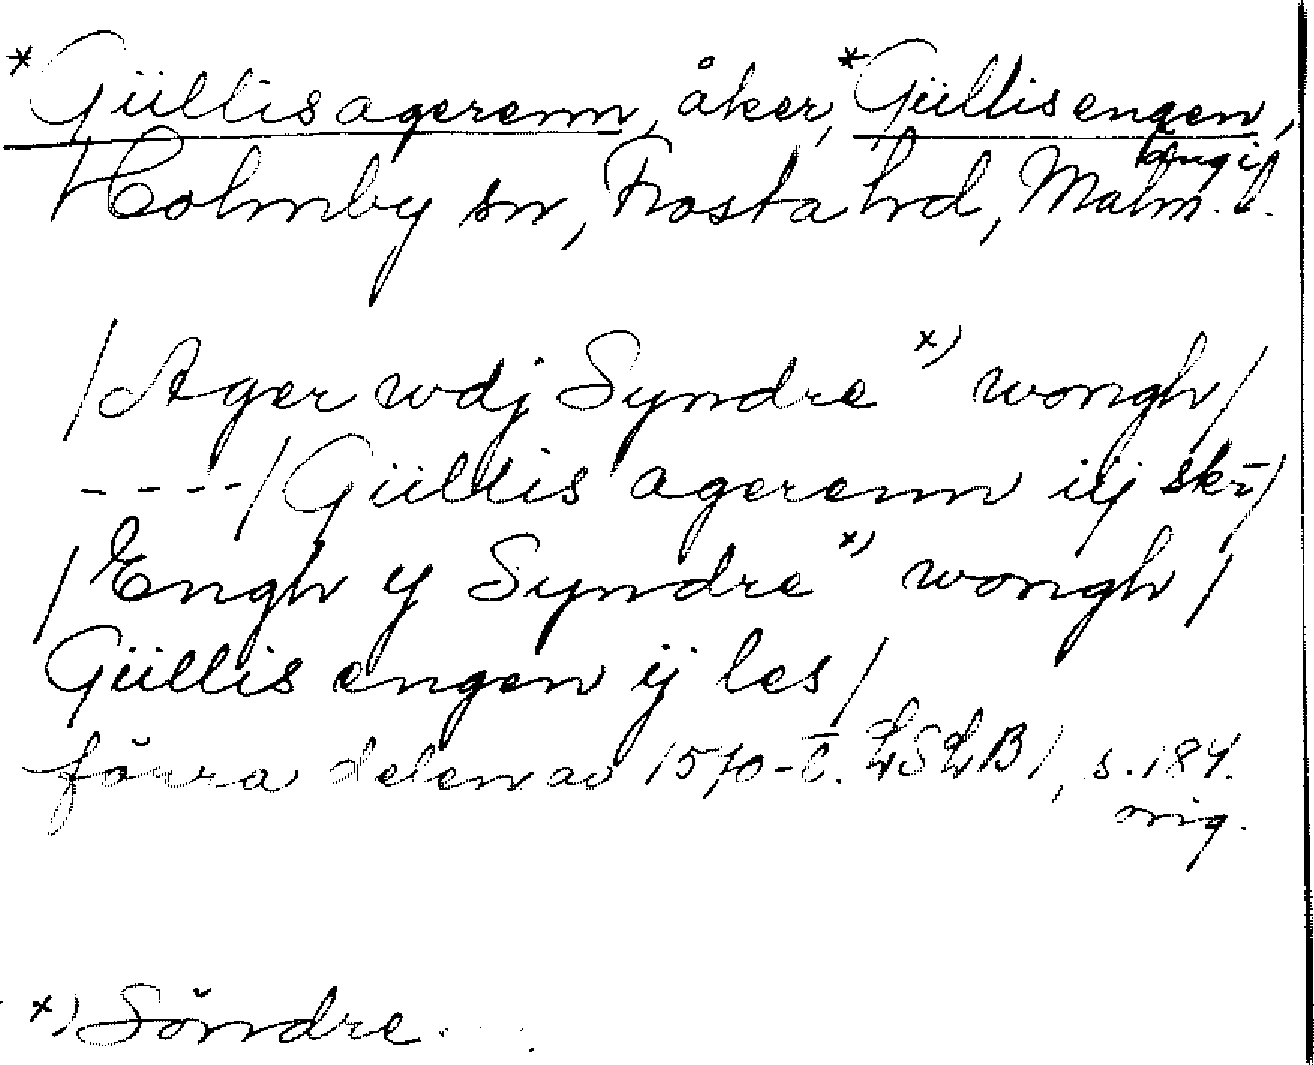 *Güllis agerenn, åker, *Güllis engen,
äng i
Holmby sn, Frosta hd, Malm. l.
/Ager wdj Syndre x) wongh/
----/Güllis agerenn iij sk
/Engh y Syndre x) wongh/
Güllis engen ij les/
förra delen av 1570-t. LSLB/, s. 184.
orig.
x) Söndre.